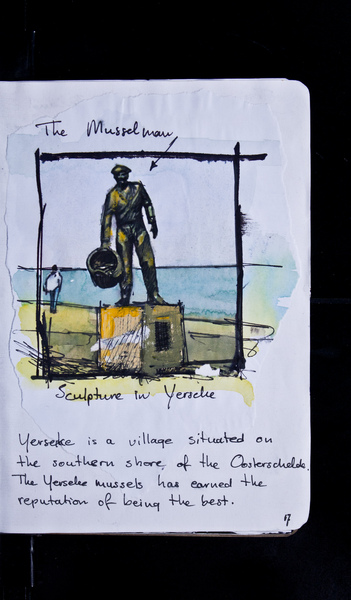 The Musselman
Sculpture in Yerseke
Yerseke is a village situated on
the southern shore, of the Oosterschelde.
The Yerseke mussels has earned the
reputation of being the best.